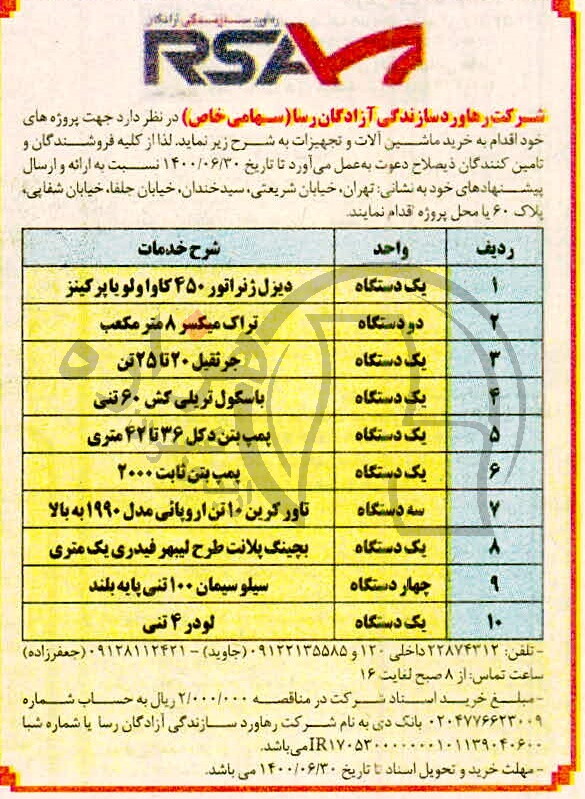 ره‌آورد سازندگی آزادگان
RSA
شرکت رهاورد سازندگی آزادگان رسا (سهامی خاص) در نظر دارد جهت پروژه های
خود اقدام به خرید ماشین آلات و تجهیزات به شرح زیر نماید. لذا از کلیه فروشندگان و
تامین کنندگان ذیصلاح دعوت به‌عمل می‌آورد تا تاریخ ۱۴۰۰/۰۶/۳۰ نسبت به ارائه و ارسال
پیشنهادهای خود به نشانی: تهران، خیابان شریعتی، سیدخندان، خیابان جلفا، خیابان شفاپی،
پلاک ۶۰ یا محل پروژه اقدام نمایند.
ردیف واحد شرح خدمات
۱ یک دستگاه دیزل ژنراتور ۴۵۰ کاوا ولو یا پرکینز
۲ دو دستگاه تراک میکسر ۸ متر مکعب
۳ یک دستگاه جرثقیل ۲۰ تا ۲۵ تن
۴ یک دستگاه باسکول تریلی کش ۶۰ تنی
۵ یک دستگاه پمپ بتن دکل ۳۶ تا ۴۲ متری
۶ یک دستگاه پمپ بتن ثابت ۲۰۰۰
۷ سه دستگاه تاور کرین ۱۰ تن اروپائی مدل ۱۹۹۰ به بالا
۸ یک دستگاه بچینگ پلانت طرح لیبهر فیدری یک متری
۹ چهار دستگاه سیلو سیمان ۱۰۰ تنی پایه بلند
۱۰ یک دستگاه لودر ۴ تنی
- تلفن: ۲۲۸۷۴۳۱۲ داخلی ۱۲۰ و ۰۹۱۲۲۱۳۵۵۸۵ (جاوید) - ۰۹۱۲۸۱۱۲۴۲۱ (جعفرزاده)
ساعت تماس: از ۸ صبح لغایت ۱۶
- مبلغ خرید اسناد شرکت در مناقصه ۲/۰۰۰/۰۰۰ ریال به حساب شماره
۰۲۰۴۷۷۶۶۲۳۰۰۹ بانک دی به نام شرکت رهاورد سازندگی آزادگان رسا یا شماره شبا
IR۱۷۰۵۳۰۰۰۰۰۰۰۱۰۱۱۳۹۰۴۰۶۰۰ می‌باشد.
- مهلت خرید و تحویل اسناد تا تاریخ ۱۴۰۰/۰۶/۳۰ می باشد.